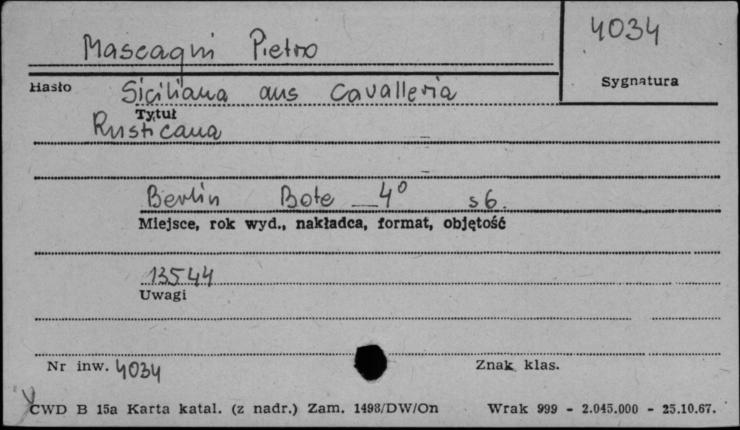 Mascagni Pietro
4034
Hasło
Siciliana aus Cavalleria
Sygnatura
Tytuł
Rusticana
Berlin Bote 4° s 6.
Miejsce, rok wyd., nakładca, format, objętość
13544
Uwagi
Nr inw. 4034
Znak klas.
CWD B 15a Karta katal. (z nadr.) Zam. 1498/DW/On Wrak 999 - 2.045.000 - 25.10.67.